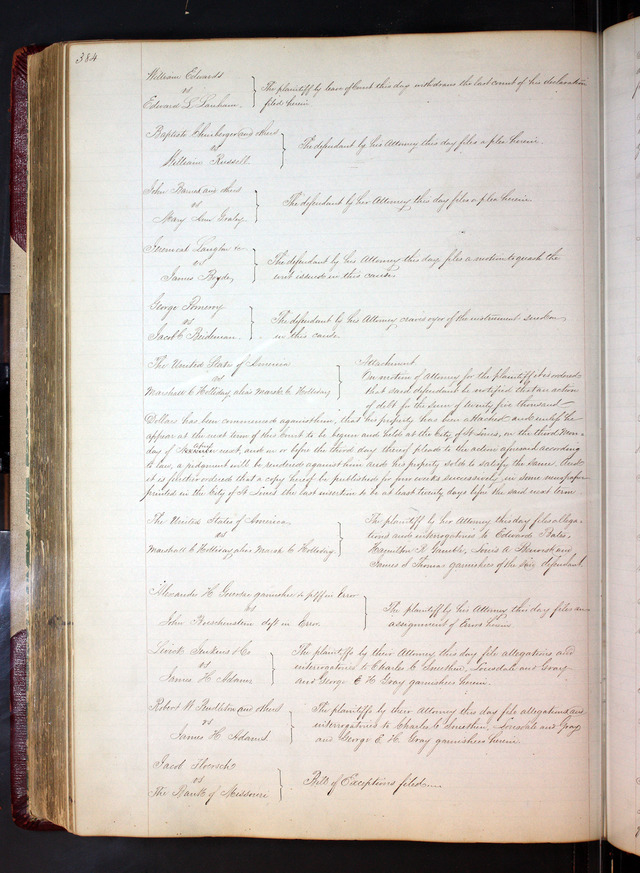 384
William Edwards
vs
Edward L. Lanham.
The plaintiff by leave of Court this day withdraws the last count of his declaration
filed herein.
Baptiste and others
vs
William Russell.
The defendant by his Attorney this day files a plea herein.
John Barnes and others
vs
Mary Ann
The defendant by her Attorney this day files a plea herein.
Langton &c
vs
James Boyds
The defendant by his Attorney this day files a motion to quash the
writ issued in this cause.
George Pomeroy
vs
Jacob C. Beideman.
The defendant by his Attorney craves oyer of the instrument sued on
in this cause.
The United States of America
vs
Marshall C Holliday, alias March C. Holliday
Attachment
On motion of Attorney for the plaintiff it is ordered
that said defendant be notified that an action
of debt for the sum of twenty five thousand
Dollars has been commenced against him, that his property has been attached and unless he
appear at the next term of this Court to be begun and held at the City of St Louis, on the third Mon-
day of April next, and on or before the third day thereof plead to the action aforesaid according
to law, a judgment will be rendered against him and his property sold to satisfy the same. And
it is further ordered that a copy hereof be published for four weeks successively in some newspaper
printed in the City of St Louis the last insertion to be at least twenty days before the said next term
The United States of America
vs
Marshall C Holliday alias March C. Holliday
The plaintiff by her Attorney this day files allega-
tions and interrogatories to Edward Bates,
Hamilton R. Gamble, Louis A. and
James S Thomas garnishees of the said defendant
Alexander H. garnishee & pltff in Error
vs
John Boeschenstein deft in Error.
The plaintiff by his Attorney this day files an
assignment of Errors herein
Jenkins & Co
vs
James H. Adams
The plaintiffs by their Attorney this day file allegations and
interrogatories to Charles C. and Gray
and George E. H. Gray garnishees herein.
Robert W. Pendleton and others
vs
James H. Adams
The plaintiffs by their Attorney this day file allegations and
interrogatories to Charles C. and Gray
and George E. H. Gray garnishees herein.
Jacob
vs
The Bank of Missouri
Bill of Exceptions filed